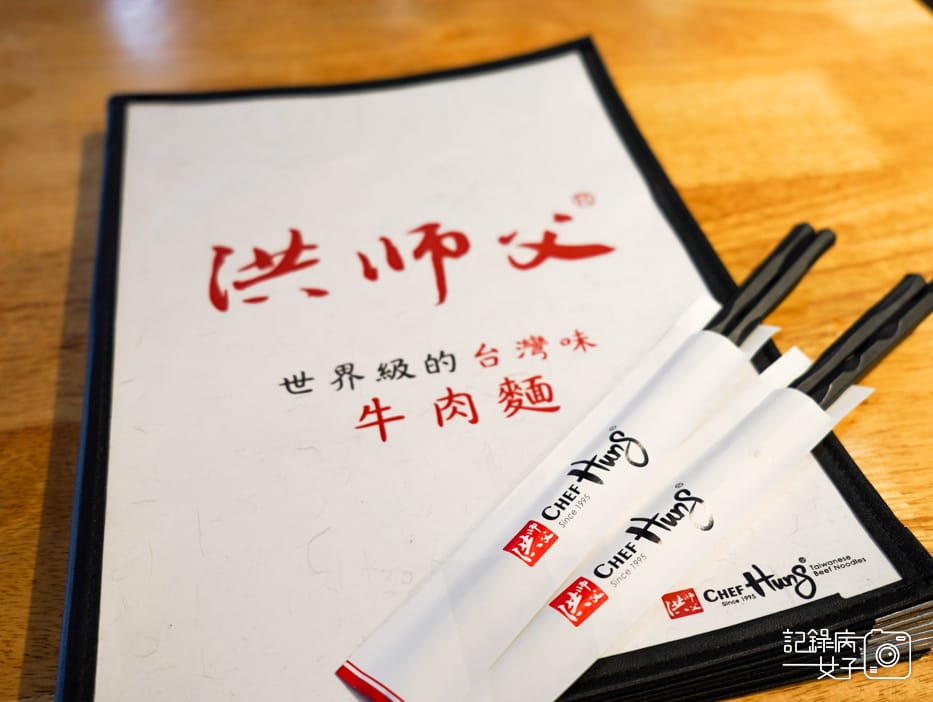 洪师父®
世界級的台灣味
牛肉麵
CHEF Hung®
Since 1995
CHEF Hung®
Since 1995
洪师父 CHEF Hung® Taiwanese
Since 1995 Beef Noodles
記錄病
女子